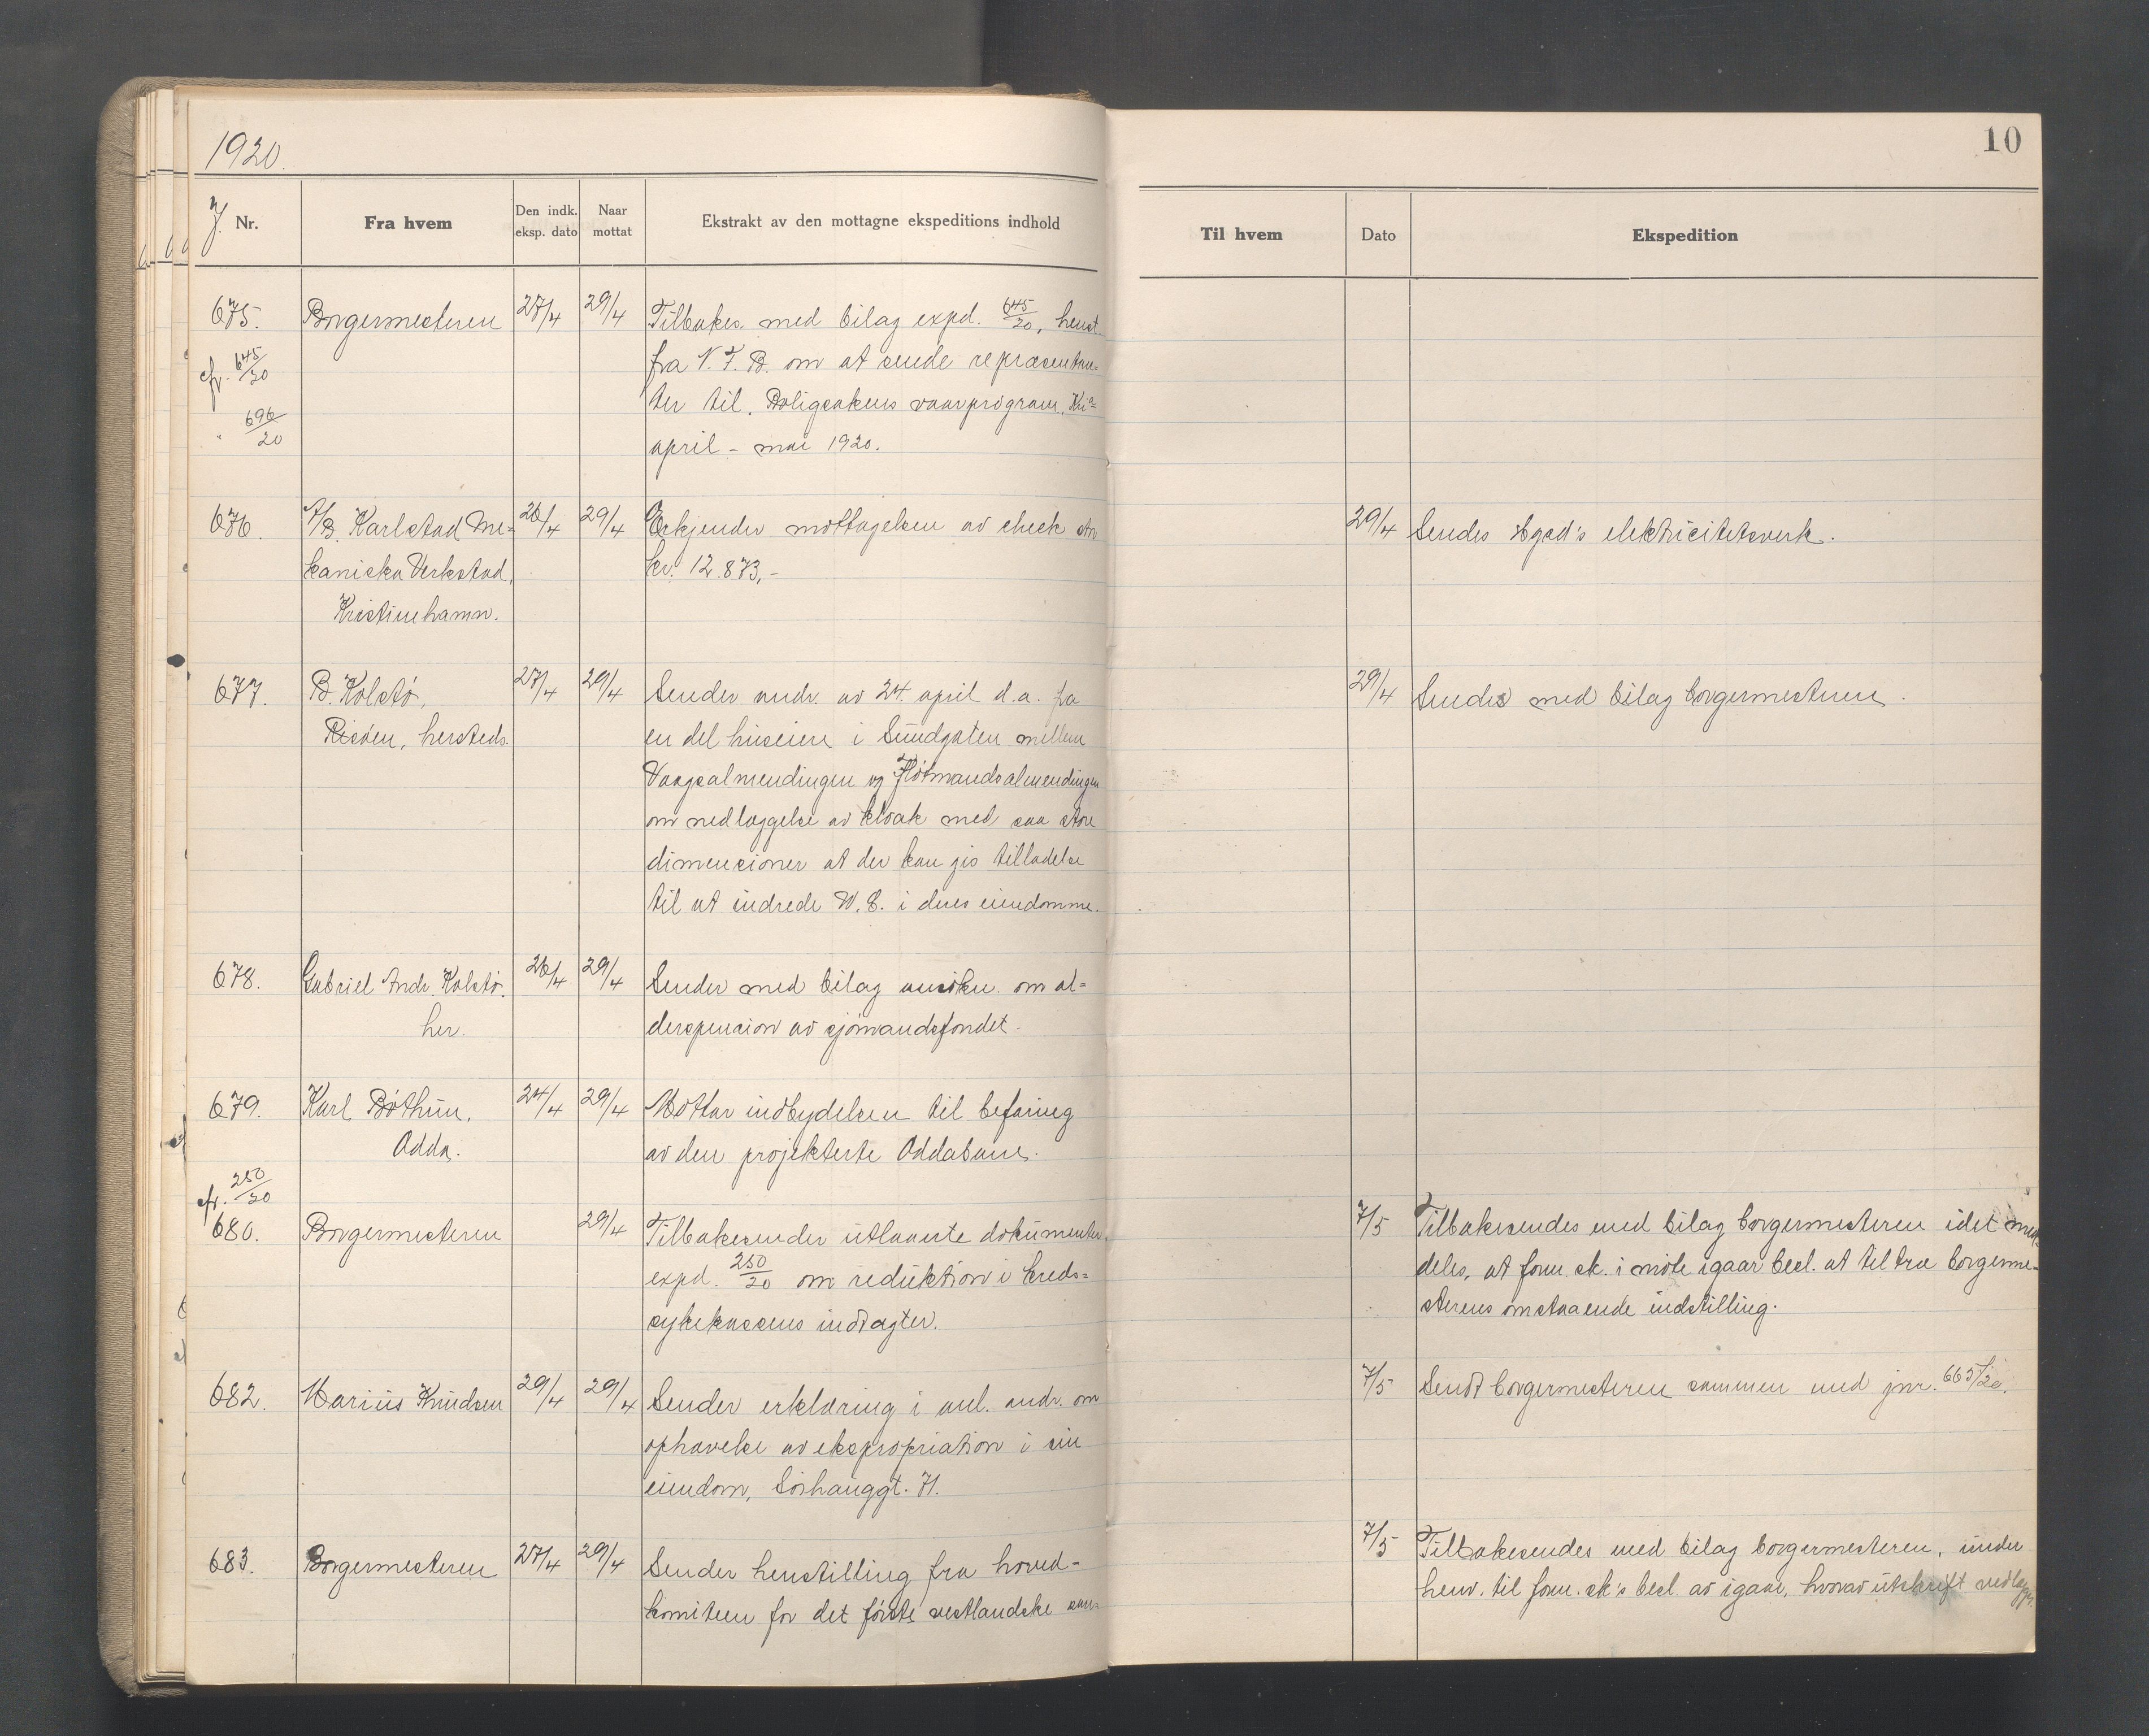 1920.
J. Nr.
Fra hvem
Den indk. eksp. dato
Naar mottat
Ekstrakt av den mottagne ekspeditions indhold
675.
cfr. 645/20
" 696/20
Borgermesteren
27/4
29/4
Tilbakes. med bilag expd. 645/20, henst.
fra N. F. B. om at sende repræsentan-
ter til Boligsakens vaarprogram, Kr.a
april - mai 1920.
676.
A/B. Karlstad Me-
kaniska Verkstad,
Kristinehamn.
26/4
29/4
Erkjender mottagelsen av check stor
kr. 12.873,-
677.
B. Kolstø,
Risøen, hersteds.
27/4
29/4
Sender andr. av 24. april d.a. fra
en del huseiere i Sundgaten mellem
Vaagsalmendingen og Fløtmandsalmendingen
om nedlæggelse av kloak med saa store
dimensioner at der kan gis tilladelse
til at indrede W.C. i deres eiendomme.
678.
Gabriel Andr. Kolstø.
her.
26/4
29/4
Sender med bilag ansøkn. om al-
derspension av sjømandsfondet.
679.
Karl Bøthun,
Odda.
24/4
29/4
Mottar indbydelsen til befaring
av den projekterte Oddabane.
cfr. 250/20
680.
Borgermesteren
29/4
Tilbakesender utlaante dokumenter,
expd. 250/20 om reduktion i kreds-
sykekassens indtægter.
682.
Marius Knudsen
29/4
29/4
Sender erklæring i anl. andr. om
ophævelse av ekspropriation i sin
eiendom, Sørhauggt. 71.
683.
Borgermesteren
27/4
29/4
Sender henstilling fra hoved-
komiteen for det første vestlandske
10
Til hvem
Dato
Ekspedition
29/4
Sendes Hgsd's elektricitetsverk.
29/4
Sendes med bilag borgermesteren.
7/5
Tilbakesendes med bilag borgermesteren idet med-
deles, at form.sk. i møte igaar besl. at tiltræ borgerme-
sterens omstaaende indstilling.
7/5
Sendt borgermesteren sammen med jnr. 665/20.
7/5
Tilbakesendes med bilag borgermesteren, under
henv. til form.sk's besl. av igaar, hvorav utskrift vedlægges.